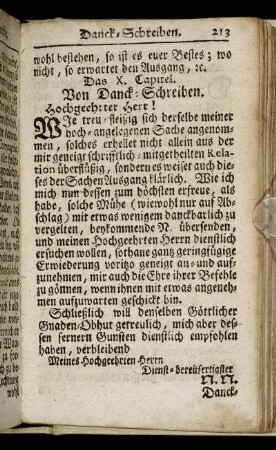 Danck-Schreiben. 213
wohl bestehen, so ist es euer Bestes; wo
nicht, so erwartet den Ausgang, ꝛc.
Das X. Capitel.
Von Danck-Schreiben.
Hochgeehrter Herr!
WIe treu-fleißig sich derselbe meiner
hoch-angelegenen Sache angenom-
men, solches erhellet nicht allein aus der
mir geneigt schrifftlich-mitgetheilten Rela-
tion überflüßig, sondern es weiset auch die-
ses der Sachen Ausgang klärlich. Wie ich
mich nun dessen zum höchsten erfreue, als
habe, solche Mühe (wiewohl nur auf Ab-
schlag) mit etwas wenigem danckbarlich zu
vergelten, beykommende N. übersenden,
und meinen Hochgeehrten Herrn dienstlich
ersuchen wollen, sothane gantz geringfügige
Erwiederung voritzo geneigt an- und auf-
zunehmen, mir auch die Ehre ihrer Befehle
zu gönnen, wenn ihnen mit etwas angeneh-
men aufzuwarten geschickt bin.
Schließlich will denselben Göttlicher
Gnaden-Obhut getreulich, mich aber des-
sen fernern Gunsten dienstlich empfohlen
haben, verbleibend
Meines Hochgeehrten Herrn
Dienst-bereitfertigster
N. N.
Danck-